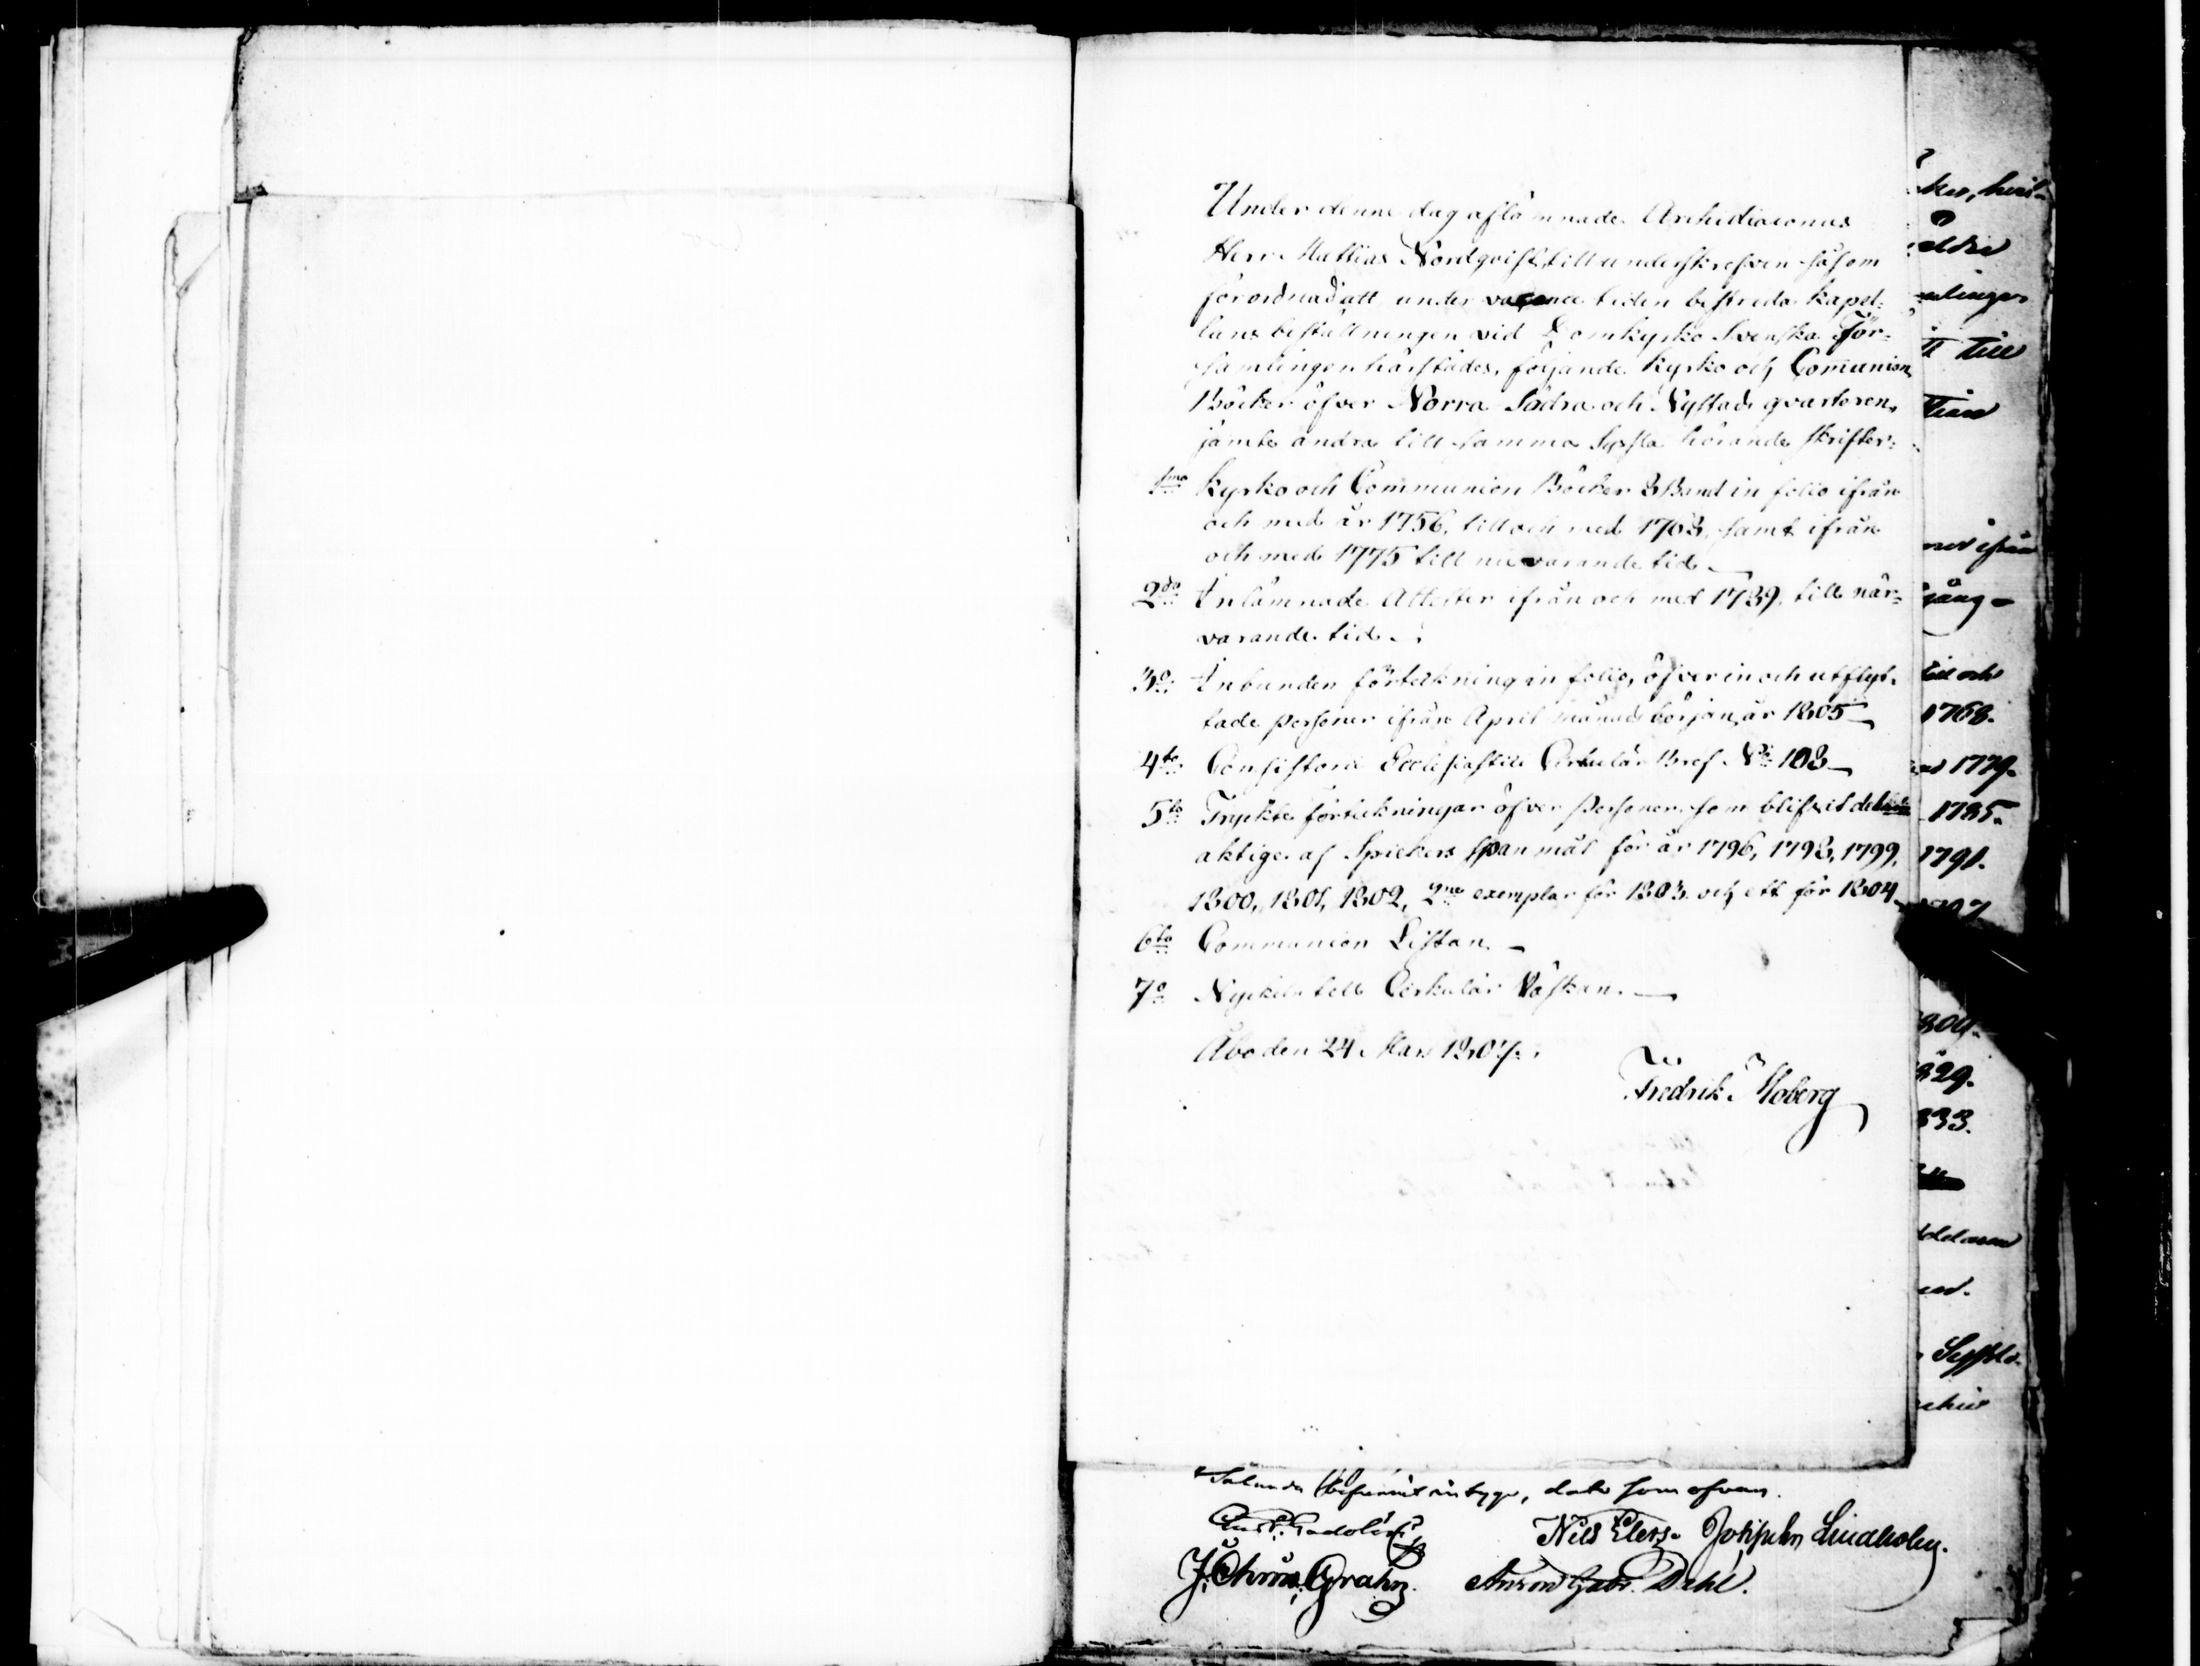 Under denne dag aflämnade Archidiaconus
Herr Mattias Nordqvist, till underskrefven såsom
förordnad att under vacance tiden bestrida kapel-
lans beställningen vid Domkyrko Svenska För-
samlingen härstädes, följande kyrko och Com̄union
Böcker öfver Norra Södra och Nystads qvarteren,
jämte andra till samma Syssla hörande skrifter:
1mo Kyrko och Communion Böcker 3 Band in folio ifrån
och med år 1756, till och med 1763, samt ifrån
och med 1775 till nuvarande tid
2do Inlämnade Attester ifrån och med 1789, till när-
varande tid.
3o Inbunden förtekning in folio, öfver in och utflyt-
tade personer ifrån April månads början, år 1805
4to Consistorii Ecclesiastici Cirkulär Bref No 103
5to Tryckte förtekningar öfver Personer som blifvit del
aktige af Spickers Spanmål för år 1796, 1798, 1799,
1800, 1801, 1802, 2ne exemplar för 1803 och ett för 1804
6to Communion Listan.
7o Nyckeln till Cirkulär Väskan.
Åbo den 24 Mars 1807.
Fredrik Moberg
Sålunda befunnit intyga, dato som ofvan.
Gust. Gadolin
Nils Elers. Johan Lindholm.
J. Chron. Grahn. Anton Gabr. Dahl.
till
ifrån
gång
till och
1768.
1779.
1785.
1791.
1797
804.
829.
833.
Syssla